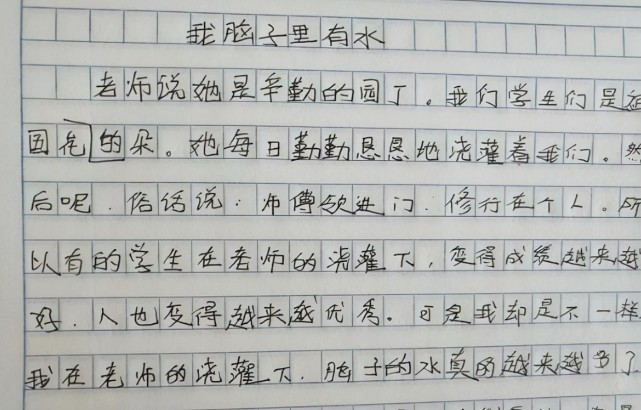 我脑子里有水
老师说她是辛勤的园丁。我们学生们是祖
国花的朵。她每日勤勤恳恳地浇灌着我们。然
后呢.俗话说:师傅领进门.修行在个人。所
以有的学生在老师的浇灌下,变得成绩越来越
好.人也变得越来越优秀。可是我却是不一样
我在老师的浇灌下.脑子的水真的越来越多了